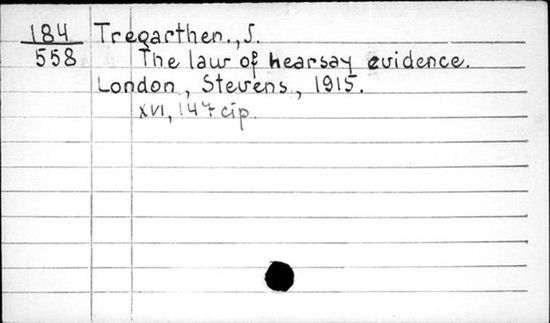 184 Tregarthen., J.
558 The law of hearsay evidence.
London, Stevens, 1915.
XVI, 147 cтр.